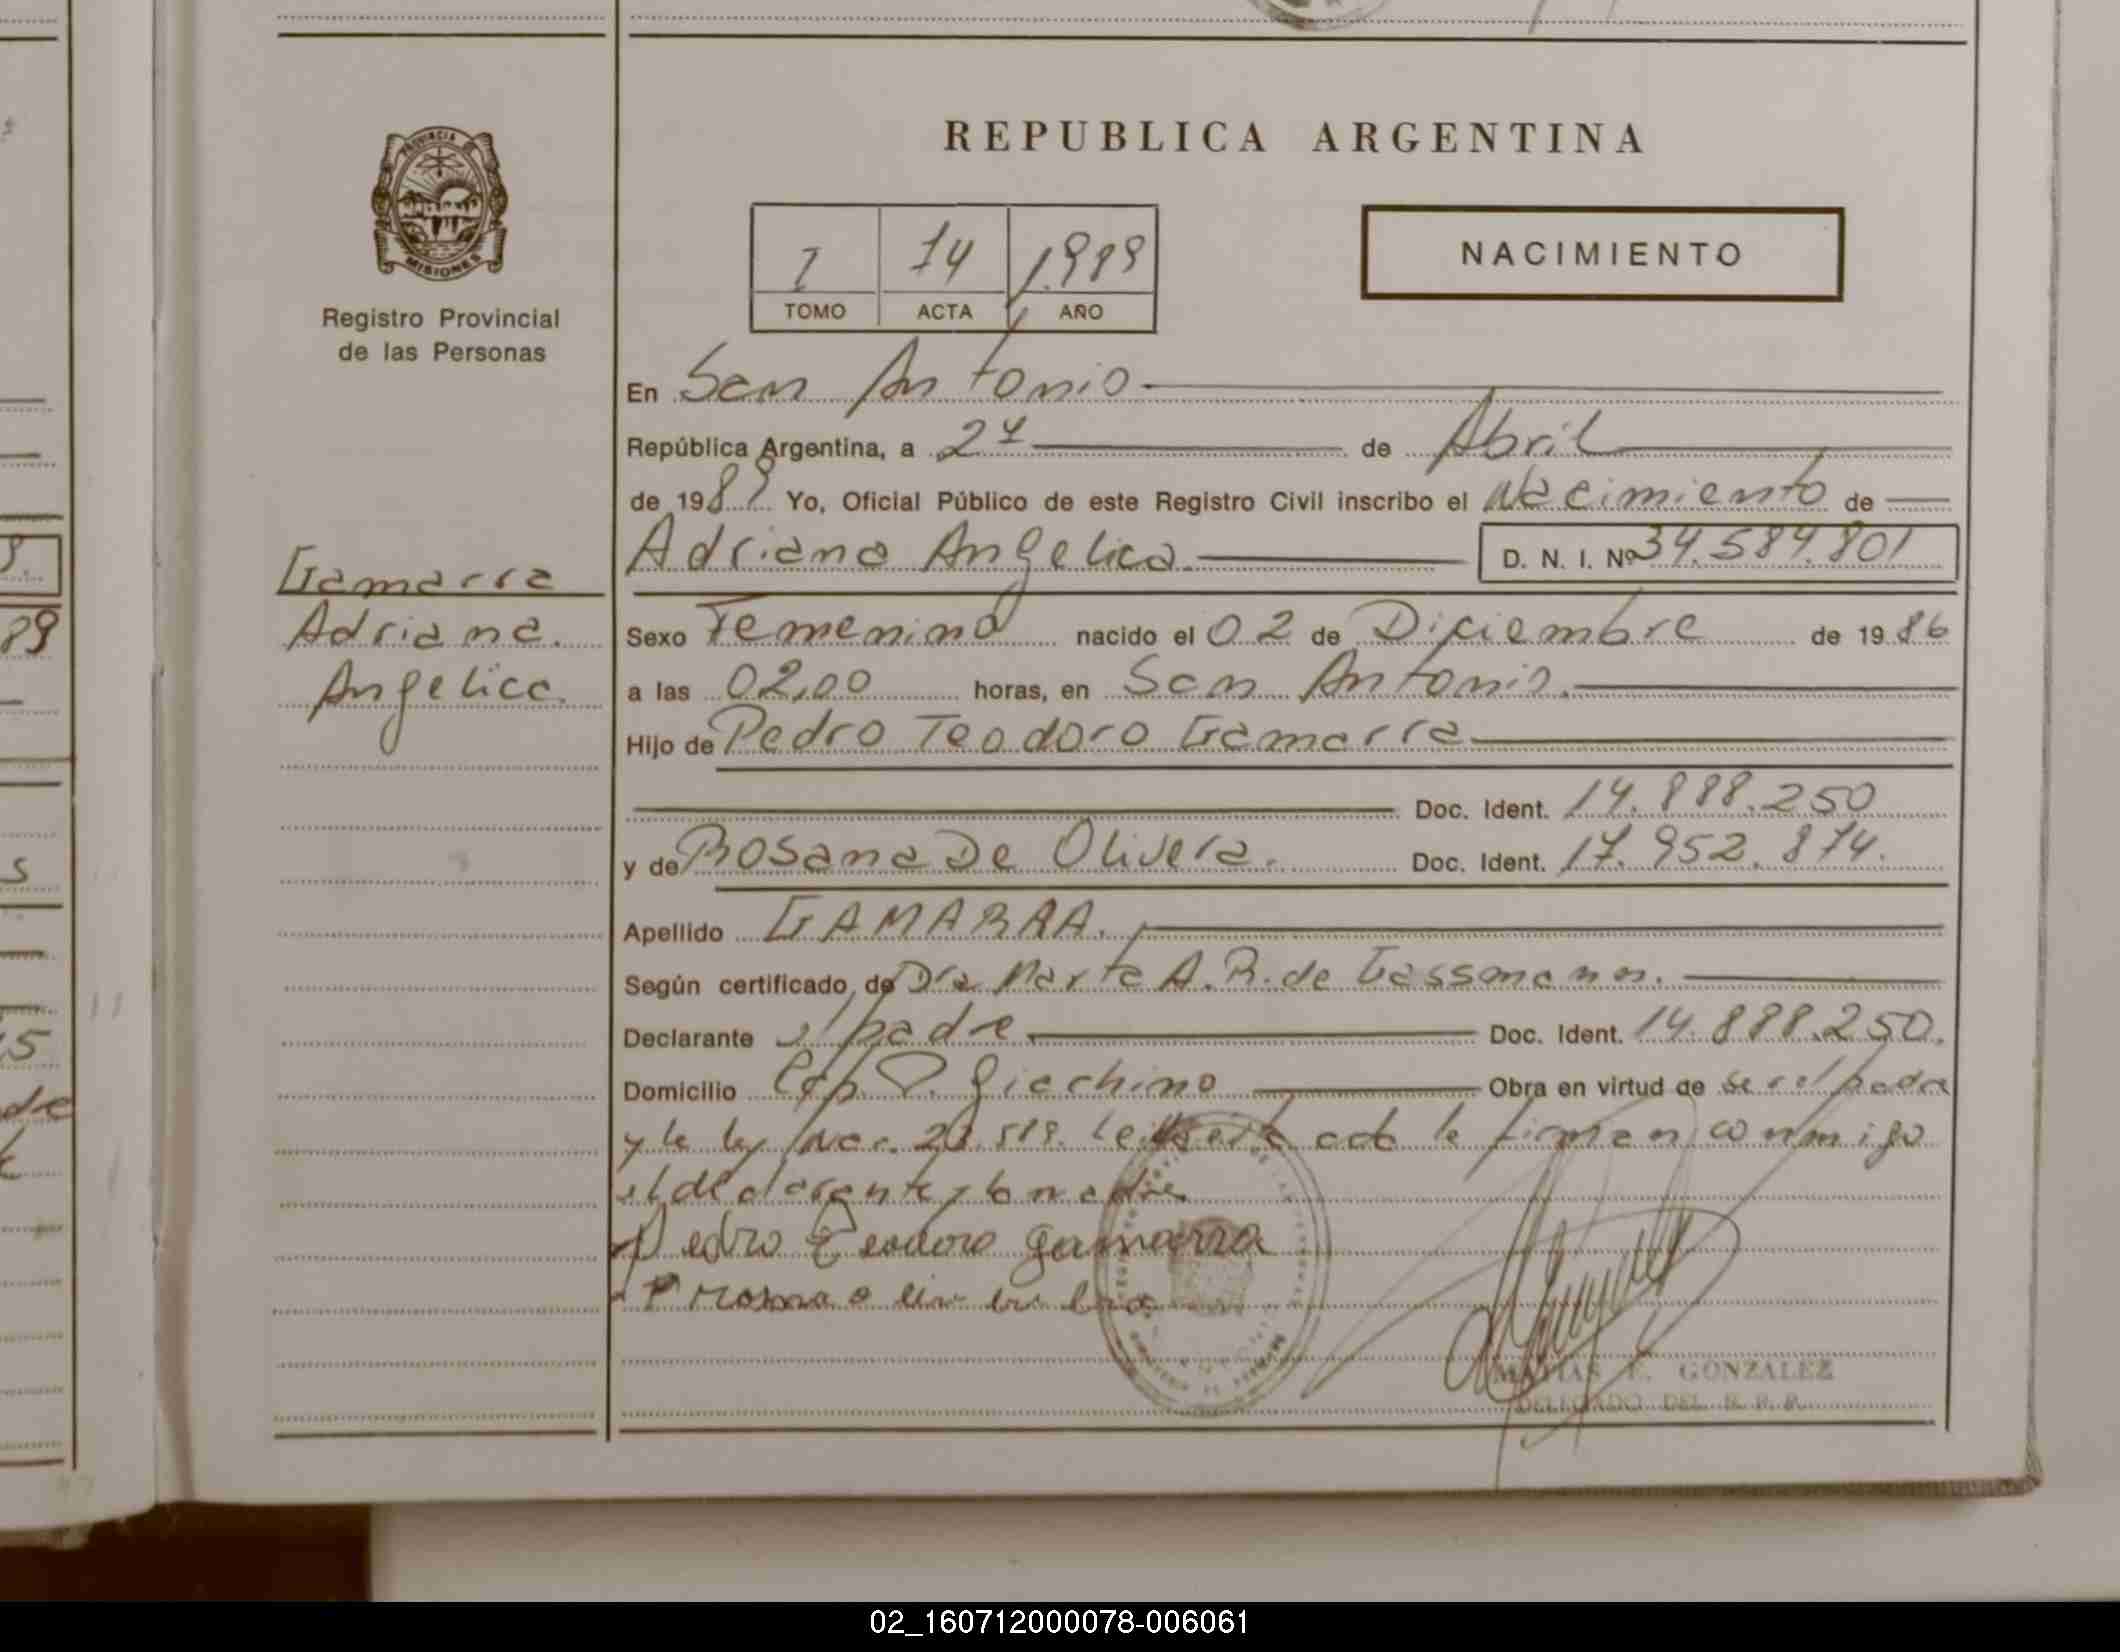 REPUBLICA ARGENTINA
PROVINCIA DE
MISIONES
Registro Provincial
de las Personas
I 14 1.989
TOMO ACTA AÑO
NACIMIENTO
En San Antonio
República Argentina, a 24 de Abril
de 1989 Yo, Oficial Público de este Registro Civil inscribo el Nacimiento de
Adriana Angelica. D. N. I. Nº 34.584.801
Gamarra
Adriana.
Angelica.
Sexo Femenino nacido el 02 de Diciembre de 1986
a las 02,00 horas, en San Antonio.
Hijo de Pedro Teodoro Gamarra
Doc. Ident. 14.888.250
y de Rosana De Olivera. Doc. Ident. 17.952.874.
Apellido GAMARRA.
Según certificado de Dra Marta A.R. de Gassmann.
Declarante el padre Doc. Ident. 14.888.250.
Domicilio Giachino Obra en virtud de ser el padre
y la ley Nac. acta la firman conmigo
el declarante y la madre
Pedro Teodoro gamarra
MATIAS E. GONZALEZ
DELEGADO DEL R. P. P.
89
5
02_160712000078-006061